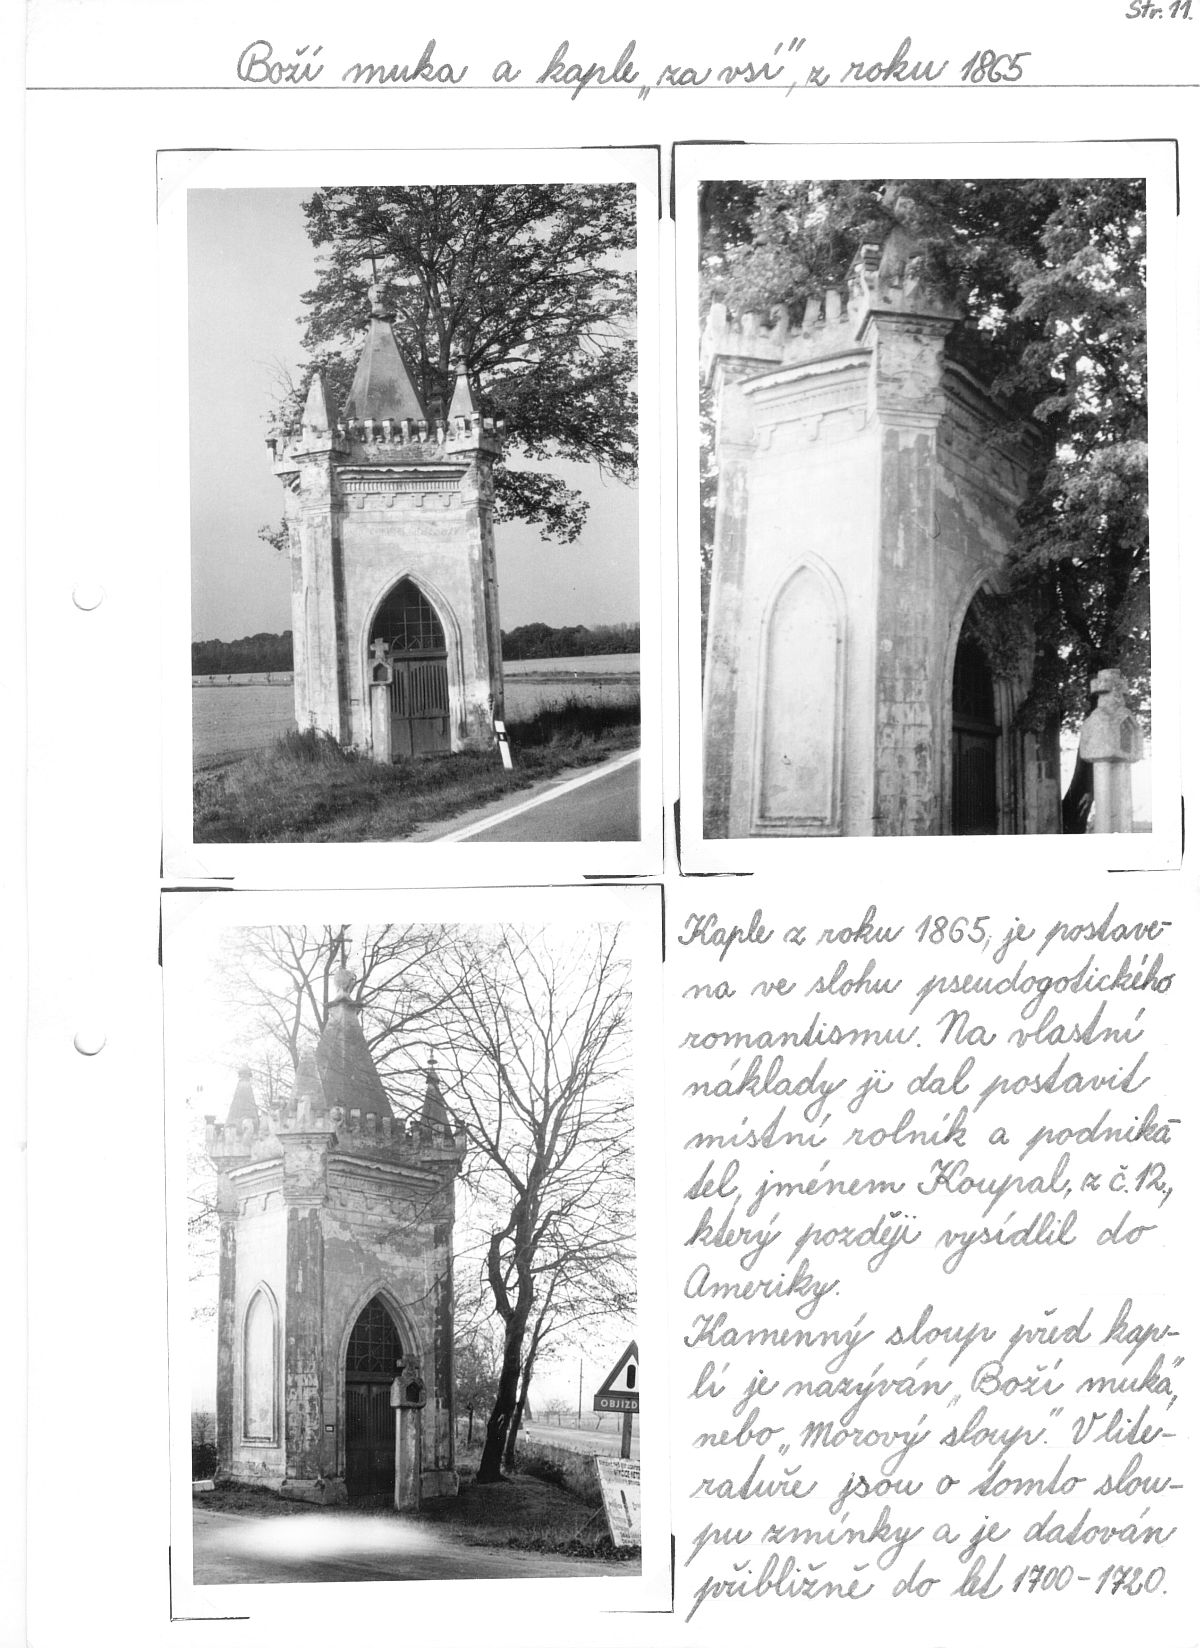 Str. 11.
Boží muka a kaple „za vsí", z roku 1865
Kaple z roku 1865, je postave-
na ve slohu pseudogotického
romantismu. Na vlastní
náklady ji dal postavit
místní rolník a podnika-
tel, jménem Koupal, z č. 12.,
který později vysídlil do
Ameriky.
Kamenný sloup před kap-
lí je nazýván „Boží muka",
nebo „Morový sloup". V lite-
ratuře jsou o tomto slou-
pu zmínky a je datován
přibližně do let 1700-1720.
OBJIZD